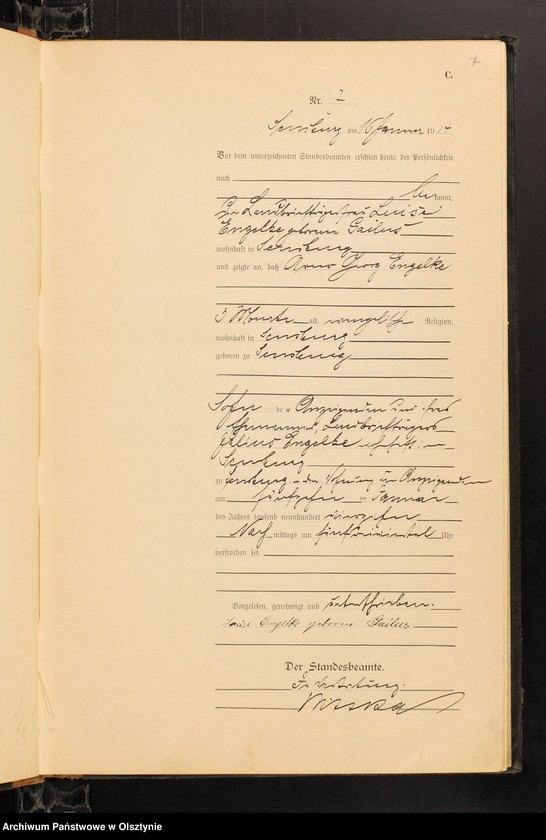 C.
Nr. 7
Sensburg am 16 Januar 1914
Vor dem unterzeichneten Standesbeamten erschien heute, der Persönlichkeit
nach
bekannt,
die Landbriefträgerfrau Luise
Engelke geborene Gailus
wohnhaft in Sensburg
und zeigte an, daß Arno Georg Engelke
3 Monate alt, evangelischer Religion,
wohnhaft in Sensburg
geboren zu Sensburg
Sohn der Anzeigenden und ihres
Ehemannes, Landbriefträgers
Julius Engelke wohnhaft in
Sensburg
zu Sensburg in der Wohnung der Anzeigenden
am fünfzehnten Januar
des Jahres tausend neunhundert vierzehn
Nachmittags um Uhr
verstorben sei.
Vorgelesen, genehmigt und unterschrieben.
Luise Engelke geborene Gailus
Der Standesbeamte.
In Vertretung.
Archiwum Państwowe w Olsztynie